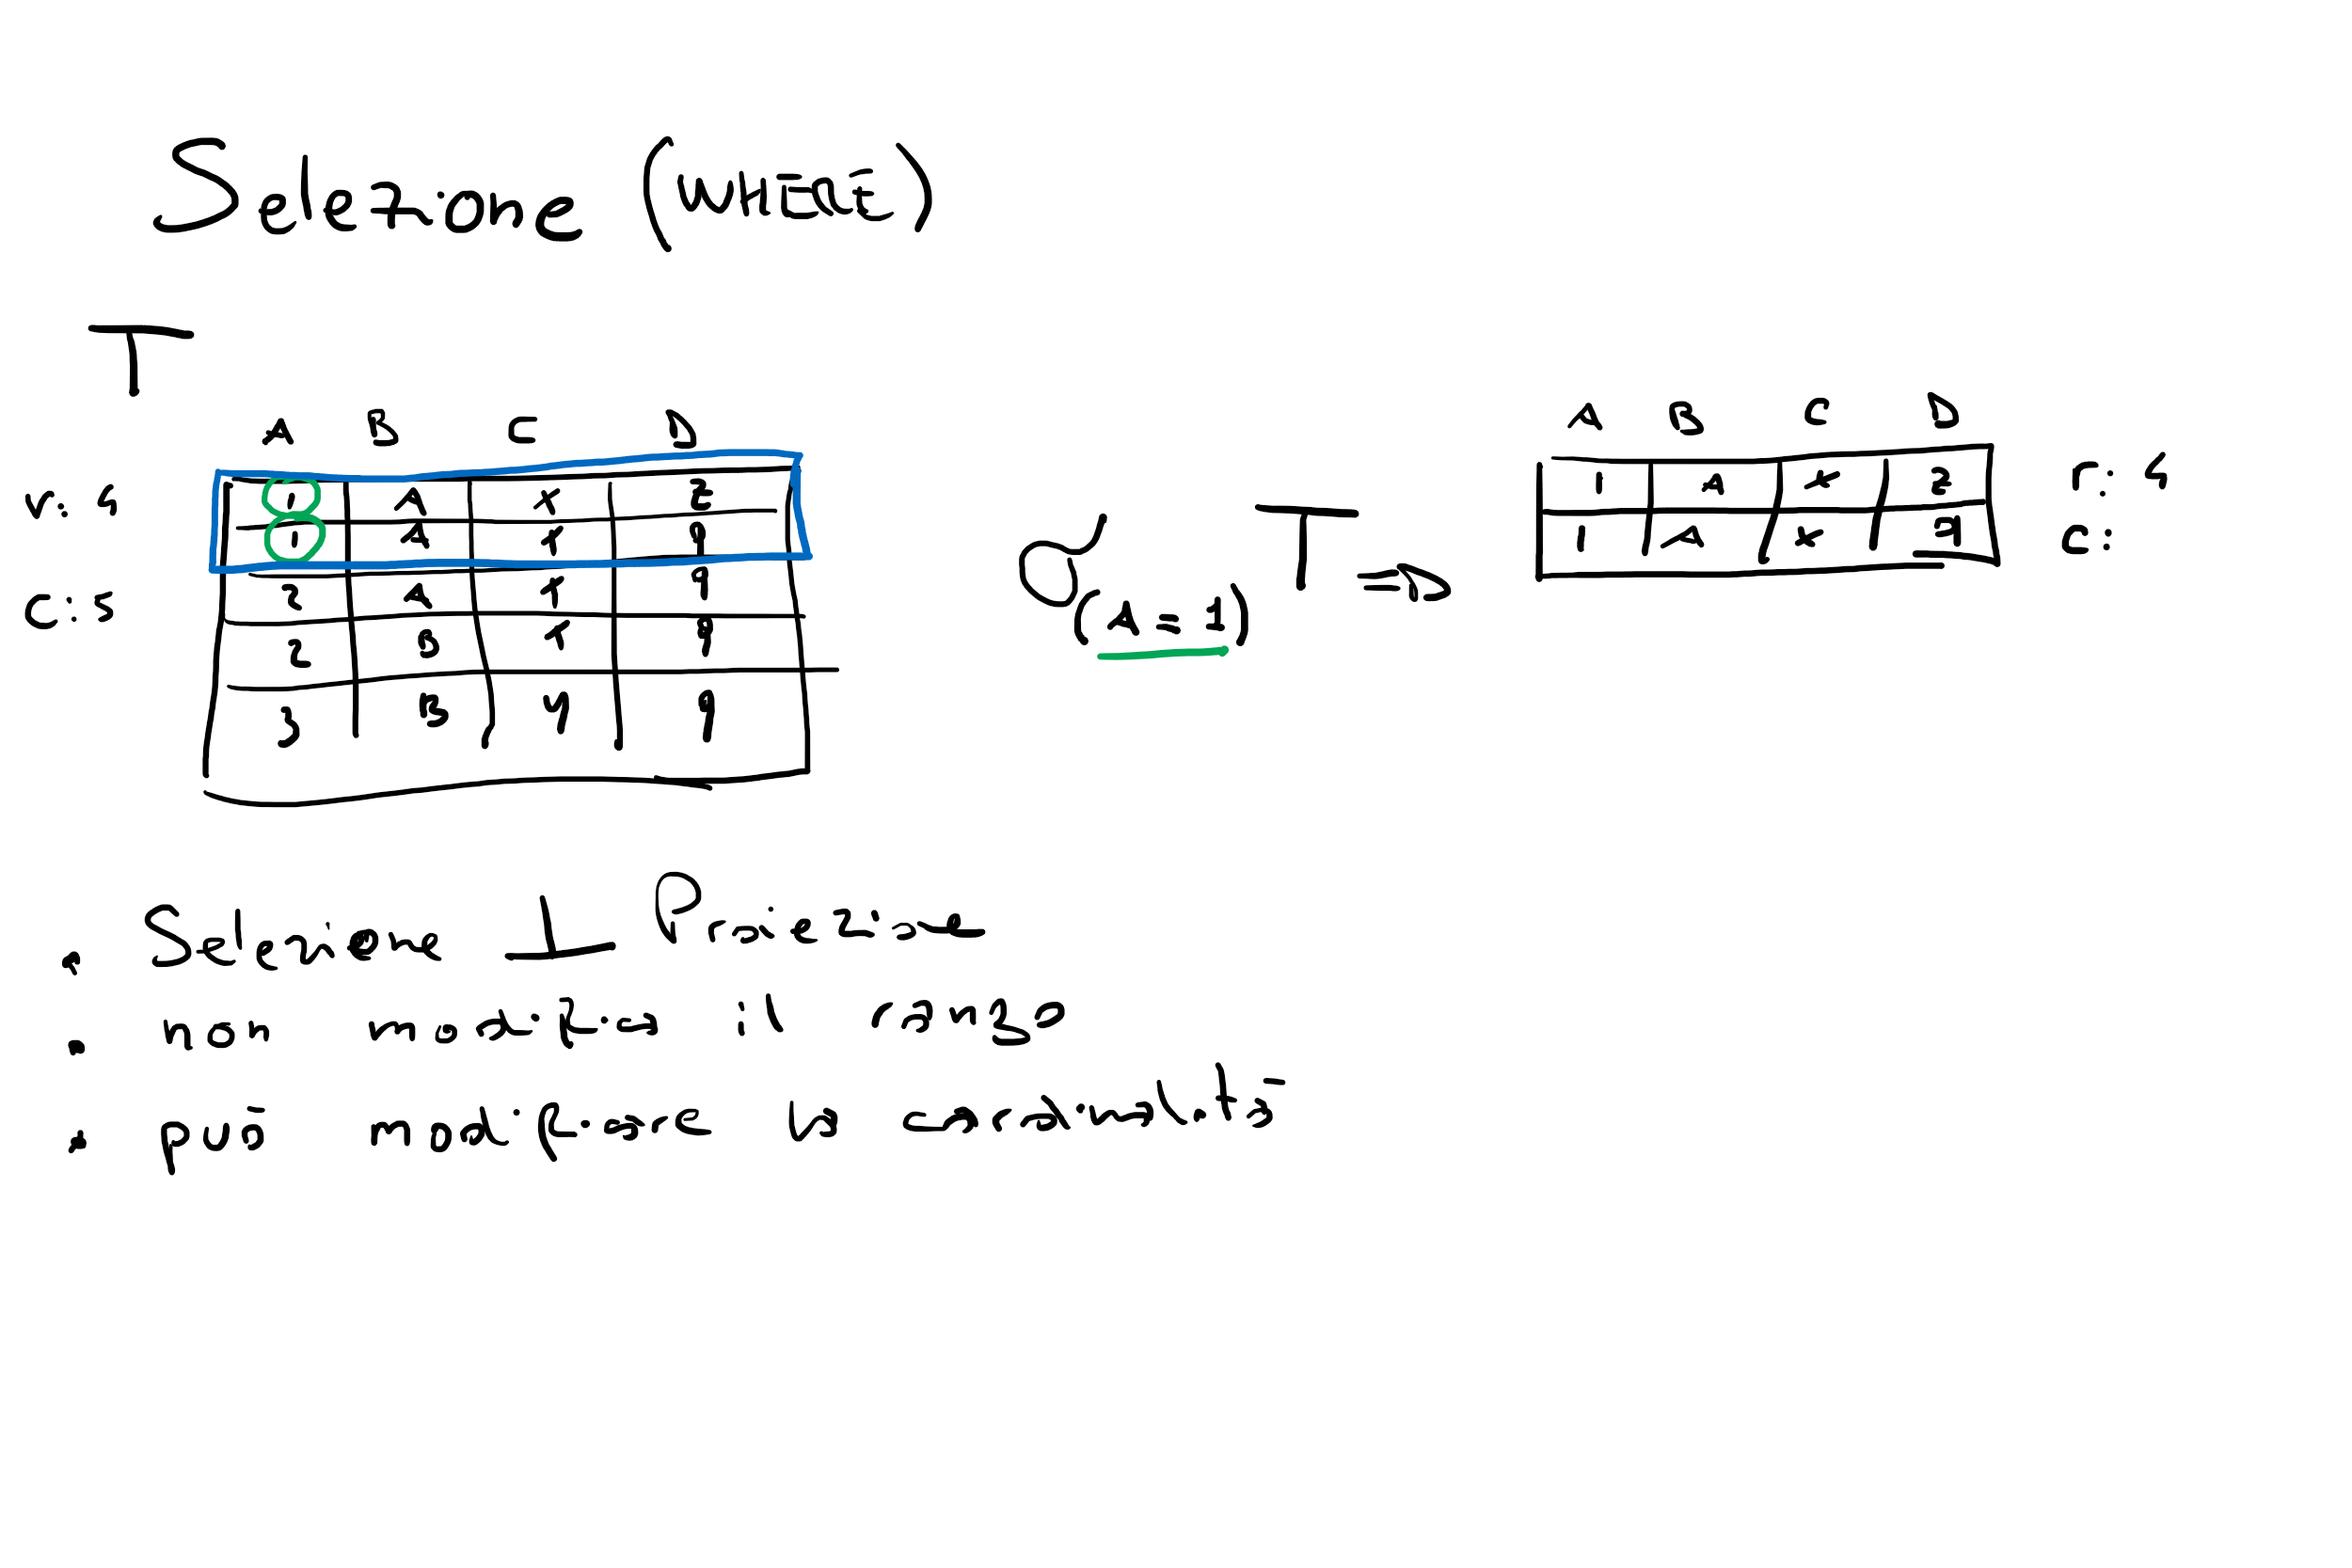 Selezione (WHERE)
T
A B C D
r: 4
c: 5
1 A X 2
1 A Y 9
2 A Y 9
2 B Y 9
3 B Y 9
σ(A = 1) T =D
A B C D
1 A 2
1 A 9
r: 4
c:
Selezione ⊥ Proiezione
non modifica il rango
può modificare la cardinalità